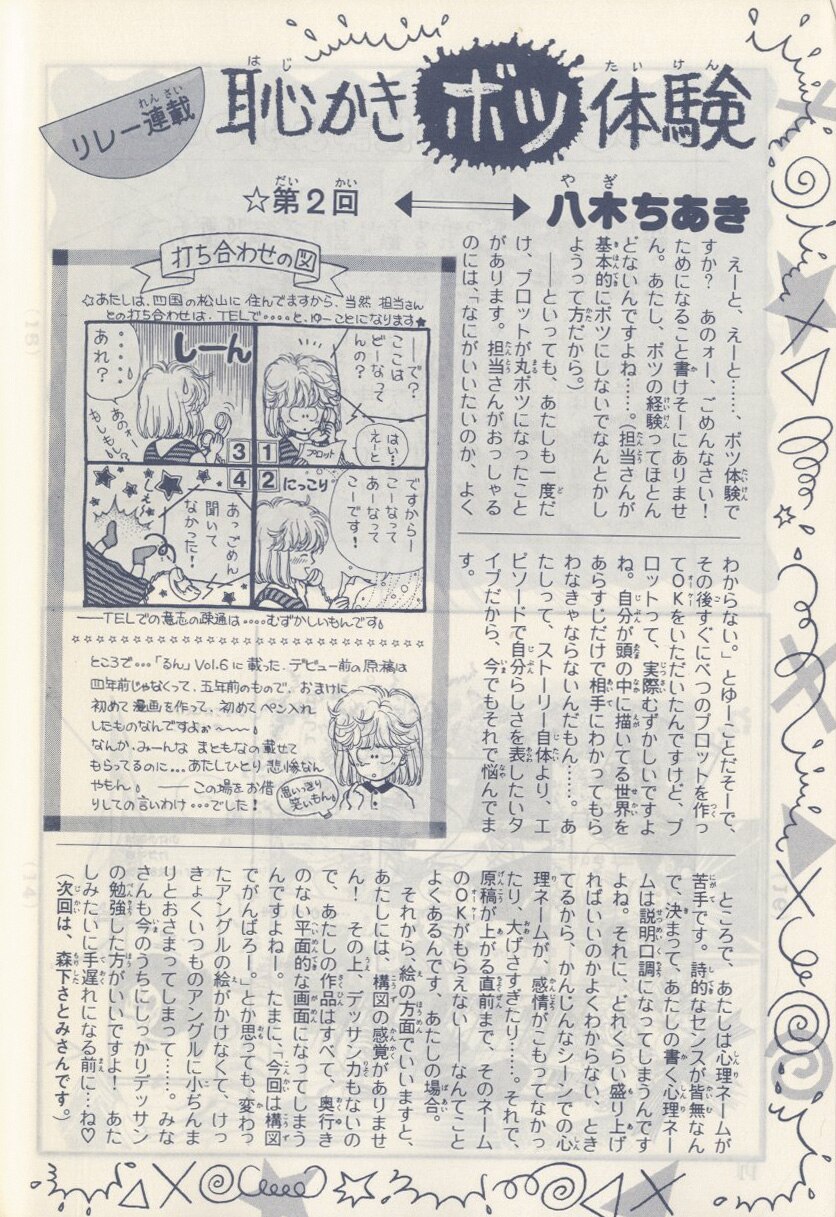 リレー連載
恥かきボツ体験
☆第2回
八木ちあき
えーと、えーと……、ボツ体験で
すか？　あのォー、ごめんなさい！
ためになること書けそーにありませ
ん。あたし、ボツの経験ってほとん
どないんですよね……。（担当さんが
基本的にボツにしないでなんとかし
ようって方だから。）
――といっても、あたしも一度だ
け、プロットが丸ボツになったこと
があります。担当さんがおっしゃる
のには、「なにがいいたいのか、よく
打ち合わせの図
☆あたしは、四国の松山に住んでますから、当然担当さん
との打ち合わせは、TELで‥‥と、ゆーことになります★
1
――で？
ここは
どーなって
んの？
はい…
えーと
プロット
2
にっこり
ですからー
こーなって
あーなって
こーです！
3
しーん
‥‥。
あれ？
あのォー
もしもし
4
あっごめん
聞いて
なかった！
――TELでの意志の疎通は‥‥むずかしいもんです。
ところで…「るん」Vol.6に載った、デビュー前の原稿は
四年前じゃなくって、五年前のもので、おまけに
初めて漫画を作って、初めてペン入れ
したものなんですよぉ〜〜〜。
なんか、みーんな まともなの載せて
もらってるのに…あたしひとり悲惨なん
やもん。――この場をお借
りしての言いわけ…でした！
思いっきり
笑いもん。
わからない。」とゆーことだそーで、
その後すぐにべつのプロットを作っ
てOKをいただいたんですけど、プ
ロットって、実際むずかしいですよ
ね。自分が頭の中に描いてる世界を
あらすじだけで相手にわかってもら
わなきゃならないんだもん……。あ
たしって、ストーリー自体より、エ
ピソードで自分らしさを表したいタ
イプだから、今でもそれで悩んでま
す。
ところで、あたしは心理ネームが
苦手です。詩的なセンスが皆無なん
で、決まって、あたしの書く心理ネー
ムは説明口調になってしまうんです
よね。それに、どれくらい盛り上げ
ればいいのかよくわからない、とき
てるから、かんじんなシーンでの心
理ネームが、感情がこもってなかっ
たり、大げさすぎたり……。それで、
原稿が上がる直前まで、そのネーム
のOKがもらえない――なんてこと
よくあるんです、あたしの場合。
それから、絵の方面でいいますと、
あたしには、構図の感覚がありませ
ん！　その上、デッサン力もないの
で、あたしの作品はすべて、奥行き
のない平面的な画面になってしまう
んですよねー。たまに、「今回は構図
でがんばろー。」とか思っても、変わっ
たアングルの絵がかけなくて、けっ
きょくいつものアングルに小ぢんま
りとおさまってしまって……。みな
さんも今のうちにしっかりデッサン
の勉強した方がいいですよ！　あた
しみたいに手遅れになる前に…ね♡
（次回は、森下さとみさんです。）